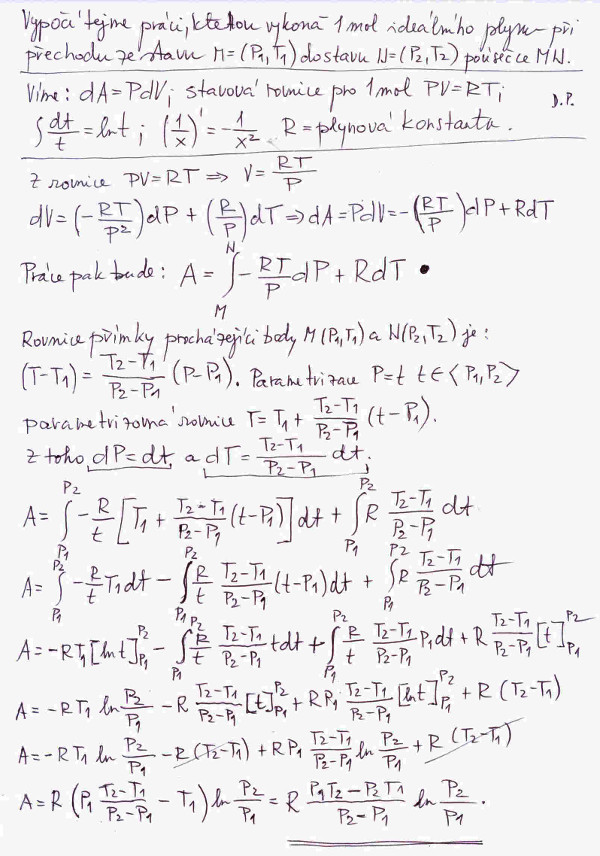 Vypočítejme práci, kterou vykoná 1 mol ideálního plynu při
přechodu ze stavu M=(P₁,T₁) do stavu N=(P₂,T₂) po úsečce MN.
Víme: dA=PdV; stavová rovnice pro 1mol PV=RT;
D.P.
∫dt/t = lnt; (1/x)' = -1/x² R = plynová konstanta.
Z rovnice PV=RT ⇒ V= RT/P
dV=(-RT/P²)dP + (R/P)dT ⇒ dA=PdV=-(RT/P)dP+RdT
Práce pak bude: A = ∫_M^N -RT/P dP + RdT •
Rovnice přímky procházející body M(P₁,T₁) a N(P₂,T₂) je:
(T-T₁) = (T₂-T₁)/(P₂-P₁) (P-P₁). Parametrizace P=t t∈<P₁,P₂>
parametrizovaná rovnice T= T₁ + (T₂-T₁)/(P₂-P₁) (t-P₁).
z toho dP=dt, a dT= (T₂-T₁)/(P₂-P₁) dt.
A= ∫_P₁^P₂ -R/t [T₁ + (T₂-T₁)/(P₂-P₁) (t-P₁)] dt + ∫_P₁^P₂ R (T₂-T₁)/(P₂-P₁) dt
A= ∫_P₁^P₂ -R/t T₁dt - ∫_P₁^P₂ R/t (T₂-T₁)/(P₂-P₁) (t-P₁)dt + ∫_P₁^P₂ R (T₂-T₁)/(P₂-P₁) dt
A=-RT₁[lnt]_P₁^P₂ - ∫_P₁^P₂ R/t (T₂-T₁)/(P₂-P₁) tdt + ∫_P₁^P₂ R/t (T₂-T₁)/(P₂-P₁) P₁dt + R (T₂-T₁)/(P₂-P₁) [t]_P₁^P₂
A=-RT₁ ln P₂/P₁ -R (T₂-T₁)/(P₂-P₁) [t]_P₁^P₂ + RP₁ (T₂-T₁)/(P₂-P₁) [lnt]_P₁^P₂ + R (T₂-T₁)
A=-RT₁ ln P₂/P₁ -R (T₂-T₁) + RP₁ (T₂-T₁)/(P₂-P₁) ln P₂/P₁ + R (T₂-T₁)
A=R (P₁ (T₂-T₁)/(P₂-P₁) - T₁) ln P₂/P₁ = R (P₁T₂-P₂T₁)/(P₂-P₁) ln P₂/P₁ .